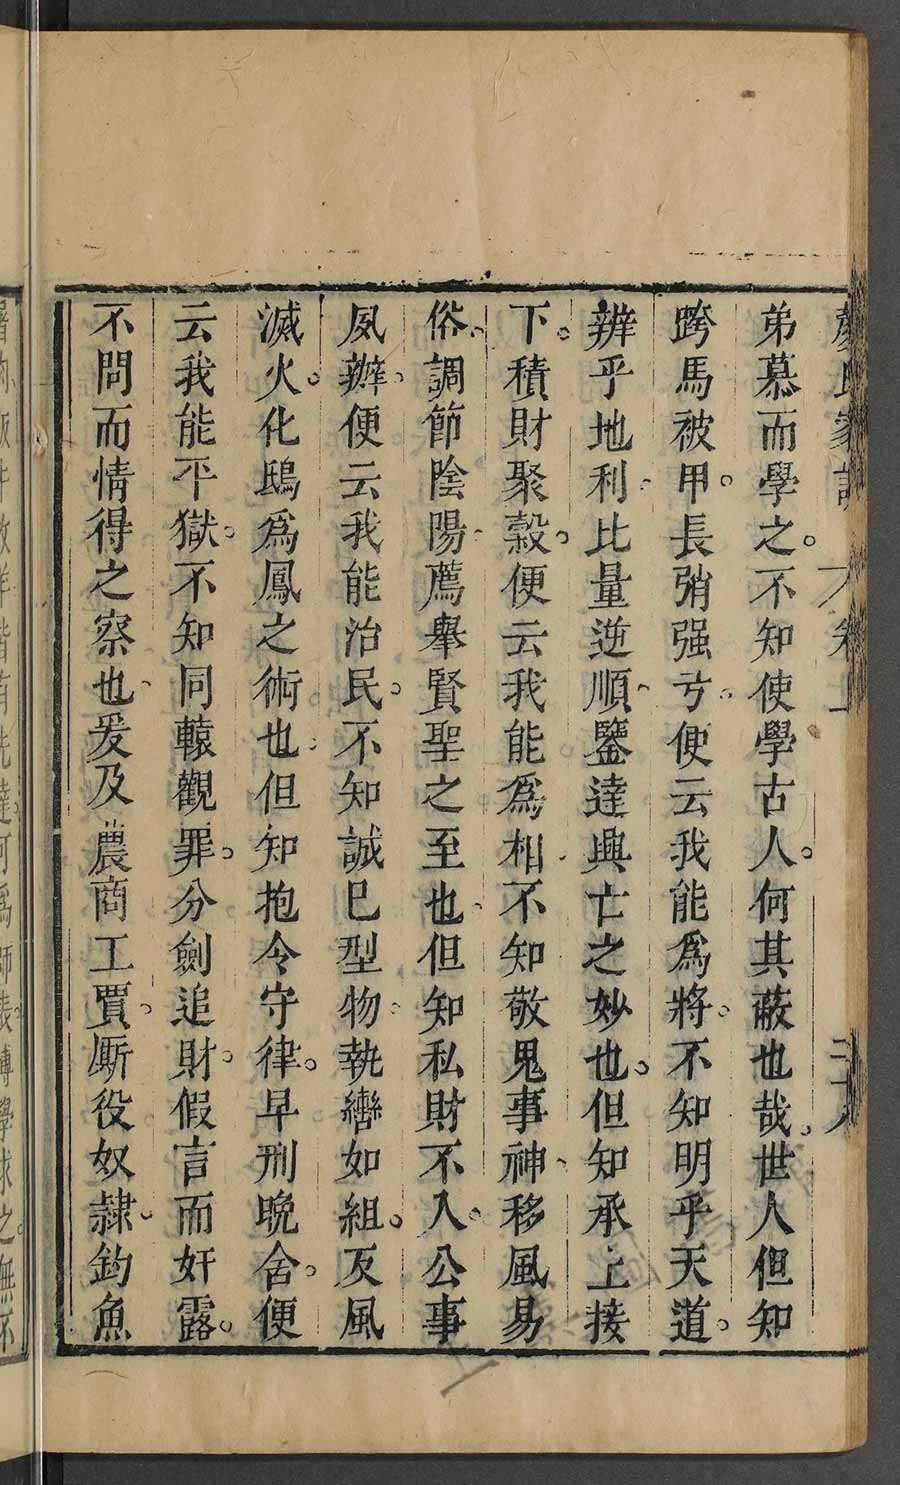 顏氏家訓 卷上 二十八
弟慕而學之不知使學古人何其蔽也哉世人但知
跨馬被甲長弰强弓便云我能爲將不知明乎天道
辨乎地利比量逆順鑒達興亡之妙也但知承上接
下積財聚穀便云我能爲相不知敬鬼事神移風易
俗調節陰陽薦舉賢聖之至也但知私財不入公事
夙辦便云我能治民不知誠已型物執轡如組反風
滅火化鴟爲鳳之術也但知抱令守律早刑晩舍便
云我能平獄不知同轅觀罪分劍追財假言而奸露
不問而情得之察也爰及農商工賈厮役奴隸釣魚